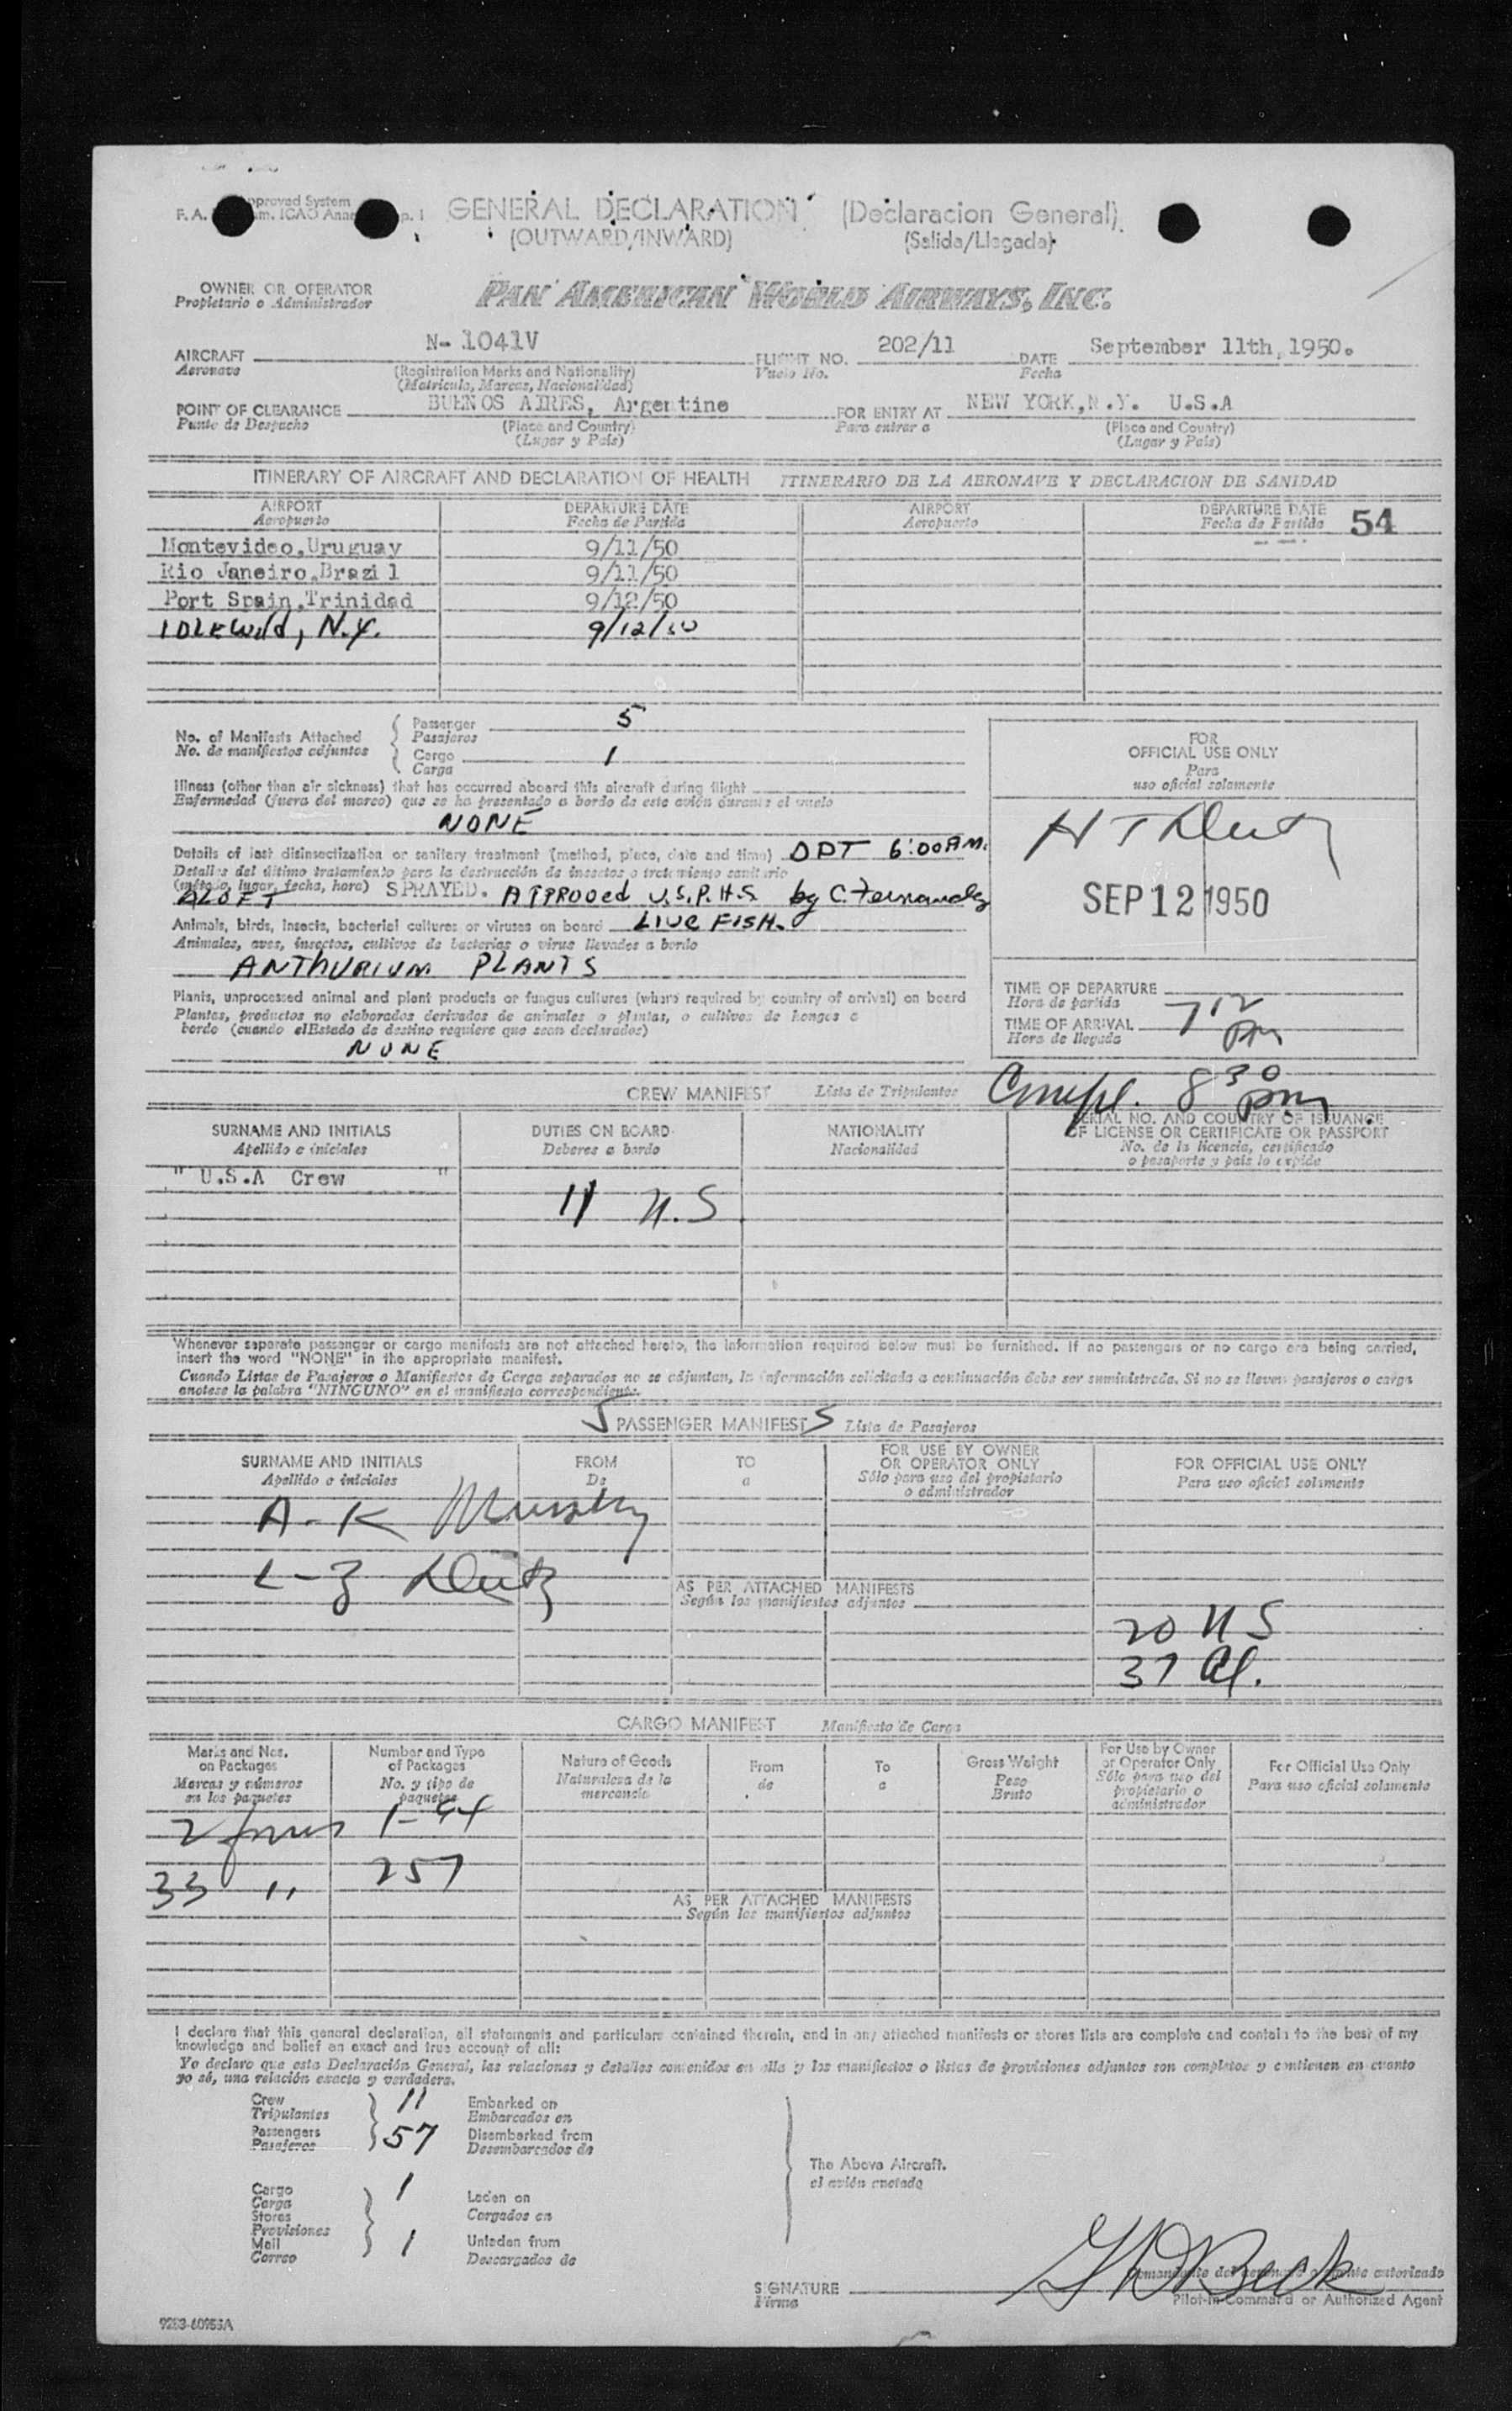 F. A.
pproved System
m. ICAO Anne
p. 1
GENERAL DECLARATION (Declaracion General)
(OUTWARD/INWARD) (Salida/Llegada)
OWNER OR OPERATOR
Propietario o Administrador
PAN AMERICAN WORLD AIRWAYS, INC.
AIRCRAFT N- 1041V FLIGHT NO. 202/11 DATE September 11th, 1950.
Aeronave (Registration Marks and Nationality) Vuelo No. Fecha
(Matricula, Marcas, Nacionalidad)
POINT OF CLEARANCE BUENOS AIRES, Argentine FOR ENTRY AT NEW YORK,N.Y. U.S.A
Punto de Despacho (Place and Country) Para entrar a (Place and Country)
(Lugar y País) (Lugar y País)
ITINERARY OF AIRCRAFT AND DECLARATION OF HEALTH ITINERARIO DE LA AERONAVE Y DECLARACION DE SANIDAD
AIRPORT DEPARTURE DATE AIRPORT DEPARTURE DATE
Aeropuerto Fecha de Partida Aeropuerto Fecha de Partida 54
Montevideo,Uruguay 9/11/50
Rio Janeiro,Brazil 9/11/50
Port Spain,Trinidad 9/12/50
IDLEwild, N.Y. 9/12/50
No. of Manifests Attached Passenger 5
No. de manifiestos adjuntos Pasajeros
Cargo 1
Carga
Illness (other than air sickness) that has occurred aboard this aircraft during flight
Enfermedad (fuera del mareo) que se ha presentado a bordo de este avión durante el vuelo
NONE
Details of last disinsectization or sanitary treatment (method, place, date and time) DDT 6:00 AM.
Detalles del último tratamiento para la destrucción de insectos o tratamiento sanitario
(método, lugar, fecha, hora) SPRAYED. APPROVED U.S.P.H.S by C. Fernandez
ALOFT
Animals, birds, insects, bacterial cultures or viruses on board LIVE FISH.
Animales, aves, insectos, cultivos de bacterias o virus llevados a bordo
ANTHURIUM PLANTS
Plants, unprocessed animal and plant products or fungus cultures (where required by country of arrival) on board
Plantas, productos no elaborados derivados de animales o plantas, o cultivos de hongos a
bordo (cuando elEstado de destino requiere que sean declarados)
NONE
FOR
OFFICIAL USE ONLY
Para
uso oficial solamente
SEP 12 1950
TIME OF DEPARTURE
Hora de partida
TIME OF ARRIVAL 7 12 pm
Hora de llegada
Compl. 8 30 pm
CREW MANIFEST Lista de Tripulantes
SURNAME AND INITIALS DUTIES ON BOARD NATIONALITY SERIAL NO. AND COUNTRY OF ISSUANCE
Apellido e iniciales Deberes a bordo Nacionalidad OF LICENSE OR CERTIFICATE OR PASSPORT
No. de la licencia, certificado
o pasaporte y país lo expide
" U.S.A Crew "
11 U.S
Whenever separate passenger or cargo manifests are not attached hereto, the information required below must be furnished. If no passengers or no cargo are being carried,
insert the word "NONE" in the appropriate manifest.
Cuando Listas de Pasajeros o Manifiestos de Carga separados no se adjuntan, la información solicitada a continuación debe ser suministrada. Si no se lleven pasajeros o carga
anotese la palabra "NINGUNO" en el manifiesto correspondiente.
5 PASSENGER MANIFEST S Lista de Pasajeros
SURNAME AND INITIALS FROM TO FOR USE BY OWNER FOR OFFICIAL USE ONLY
Apellido e iniciales De a OR OPERATOR ONLY Para uso oficial solamente
Sólo para uso del propietario
o administrador
A - K Murphy
L - Z
AS PER ATTACHED MANIFESTS
Según los manifiestos adjuntos
20 US
37 Al.
CARGO MANIFEST Manifiesto de Carga
Marks and Nos. on Packages
Marcas y números en los paquetes
Number and Type of Packages
No. y tipo de paquetes
Nature of Goods
Naturaleza de la mercancía
From
de
To
a
Gross Weight
Peso Bruto
For Use by Owner or Operator Only
Sólo para uso del propietario o administrador
For Official Use Only
Para uso oficial solamente
2 forms I-94
33 " 257
AS PER ATTACHED MANIFESTS
Según los manifiestos adjuntos
I declare that this general declaration, all statements and particulars contained therein, and in any attached manifests or stores lists are complete and contain to the best of my
knowledge and belief an exact and true account of all:
Yo declaro que esta Declaración General, las relaciones y detalles contenidos en ella y los manifiestos o listas de provisiones adjuntos son completos y contienen en cuanto
yo sé, una relación exacta y verdadera.
Crew 11 Embarked on
Tripulantes Embarcados en
Passengers 57 Disembarked from
Pasajeros Desembarcados de
The Above Aircraft.
el avión anotado
Cargo 1
Carga Laden on
Stores Cargados en
Provisiones
Mail 1 Unladen from
Correo Descargados de
SIGNATURE G D Beck
Firma
Comandante del aeronave o agente autorizado
Pilot-in-Command or Authorized Agent
9283-60955A